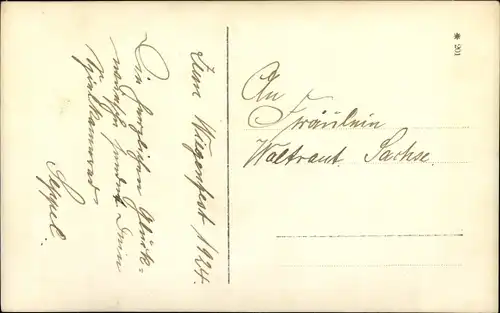 Zum Wiegenfest 1924.
Die herzlichsten Glück-
wünsche sendet Dein
Spielkamerad
Seppel.
An
Fräulein
Waltraut Sachse.
* 201